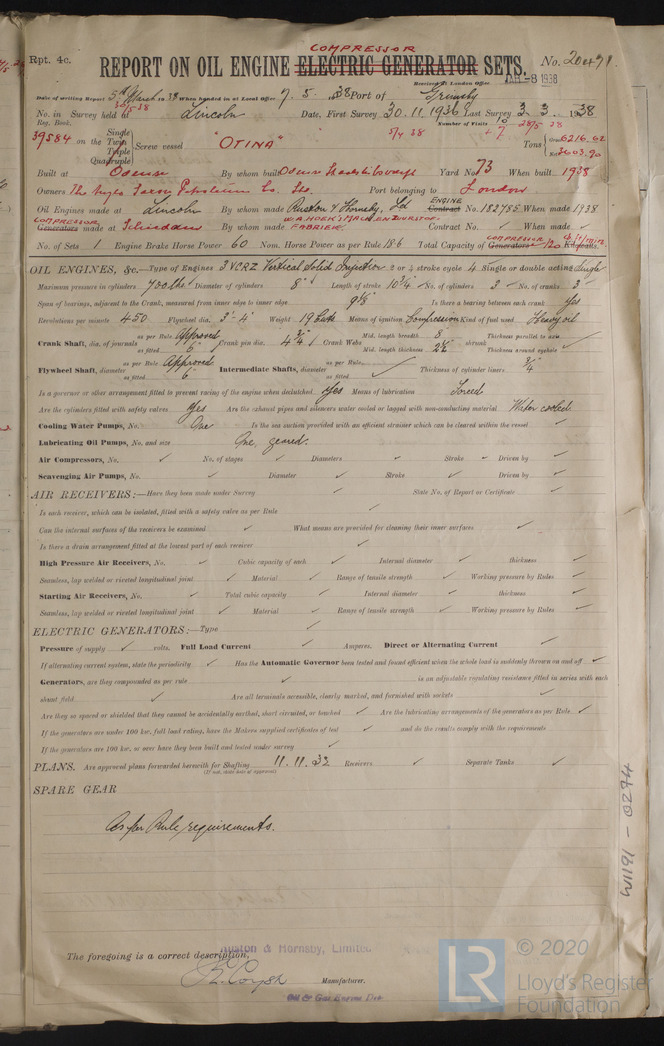 COMPRESSOR
Rpt. 4c.
REPORT ON OIL ENGINE ELECTRIC GENERATOR SETS.
No. 20491
Received at London Office -8 1938
Date of writing Report 5th March 1938 When handed in at Local Office 7. 5. 1938 Port of Grimsby
No. in Survey held at Lincoln Date, First Survey 30. 11. 1936 Last Survey 3. 3. 1938
Reg. Book. Number of Visits
39584 on the Single Twin Triple Quadruple Screw vessel "OTINA" Tons Gross 6216.62 Net 3603.90
Built at Odense By whom built Odense Staalskibsvaerft Yard No. 73 When built 1938
Owners The Anglo Saxon Petroleum Co. Ltd. Port belonging to London
Oil Engines made at Lincoln By whom made Ruston & Hornsby, Ld ENGINE Contract No. 182785 When made 1938
COMPRESSOR Generators made at Schiedam By whom made FABRIEK. Contract No. ✓ When made ✓
No. of Sets 1 Engine Brake Horse Power 60 Nom. Horse Power as per Rule 18.6 Total Capacity of COMPRESSOR Generators 120 Kilowatts.
OIL ENGINES, &c.—Type of Engines 3 VCRZ Vertical Solid Injection 2 or 4 stroke cycle 4 Single or double acting Single
Maximum pressure in cylinders 700 lbs Diameter of cylinders 8" Length of stroke 10¾" No. of cylinders 3 No. of cranks 3
Span of bearings, adjacent to the Crank, measured from inner edge to inner edge 9⅛" Is there a bearing between each crank yes
Revolutions per minute 450 Flywheel dia. 3'-4" Weight 19 Cwts Means of ignition Compression Kind of fuel used Heavy oil
Crank Shaft, dia. of journals as per Rule Approved as fitted 6" Crank pin dia. 4¾" Crank Webs Mid. length breadth 8" Mid. length thickness 2½" shrunk Thickness parallel to axis Thickness around eyehole ✓
Flywheel Shaft, diameter as per Rule Approved as fitted 6" Intermediate Shafts, diameter as per Rule as fitted ✓ Thickness of cylinder liners ¾"
Is a governor or other arrangement fitted to prevent racing of the engine when declutched Yes Means of lubrication Forced
Are the cylinders fitted with safety valves Yes Are the exhaust pipes and silencers water cooled or lagged with non-conducting material Water cooled
Cooling Water Pumps, No. One Is the sea suction provided with an efficient strainer which can be cleared within the vessel ✓
Lubricating Oil Pumps, No. and size One, geared.
Air Compressors, No. ✓ No. of stages ✓ Diameters ✓ Stroke ✓ Driven by ✓
Scavenging Air Pumps, No. ✓ Diameter ✓ Stroke ✓ Driven by ✓
AIR RECEIVERS:—Have they been made under Survey ✓ State No. of Report or Certificate ✓
Is each receiver, which can be isolated, fitted with a safety valve as per Rule ✓
Can the internal surfaces of the receivers be examined ✓ What means are provided for cleaning their inner surfaces ✓
Is there a drain arrangement fitted at the lowest part of each receiver ✓
High Pressure Air Receivers, No. ✓ Cubic capacity of each ✓ Internal diameter ✓ thickness ✓
Seamless, lap welded or riveted longitudinal joint ✓ Material ✓ Range of tensile strength ✓ Working pressure by Rules ✓
Starting Air Receivers, No. ✓ Total cubic capacity ✓ Internal diameter ✓ thickness ✓
Seamless, lap welded or riveted longitudinal joint ✓ Material ✓ Range of tensile strength ✓ Working pressure by Rules ✓
ELECTRIC GENERATORS:—Type ✓
Pressure of supply ✓ volts. Full Load Current ✓ Amperes. Direct or Alternating Current ✓
If alternating current system, state the periodicity ✓ Has the Automatic Governor been tested and found efficient when the whole load is suddenly thrown on and off ✓
Generators, are they compounded as per rule ✓ is an adjustable regulating resistance fitted in series with each
shunt field ✓ Are all terminals accessible, clearly marked, and furnished with sockets ✓
Are they so spaced or shielded that they cannot be accidentally earthed, short circuited, or touched ✓ Are the lubricating arrangements of the generators as per Rule ✓
If the generators are under 100 kw. full load rating, have the Makers supplied certificates of test ✓ and do the results comply with the requirements ✓
If the generators are 100 kw. or over have they been built and tested under survey ✓
PLANS. Are approved plans forwarded herewith for Shafting 11. 11. 32 Receivers ✓ Separate Tanks ✓
(If not, state date of approval)
SPARE GEAR
As per Rule requirements.
The foregoing is a correct description,
Ruston & Hornsby, Limited
Manufacturer.
Oil & Gas Engine Dep
W1191 - 0294
LR
© 2020
Lloyd's Register
Foundation